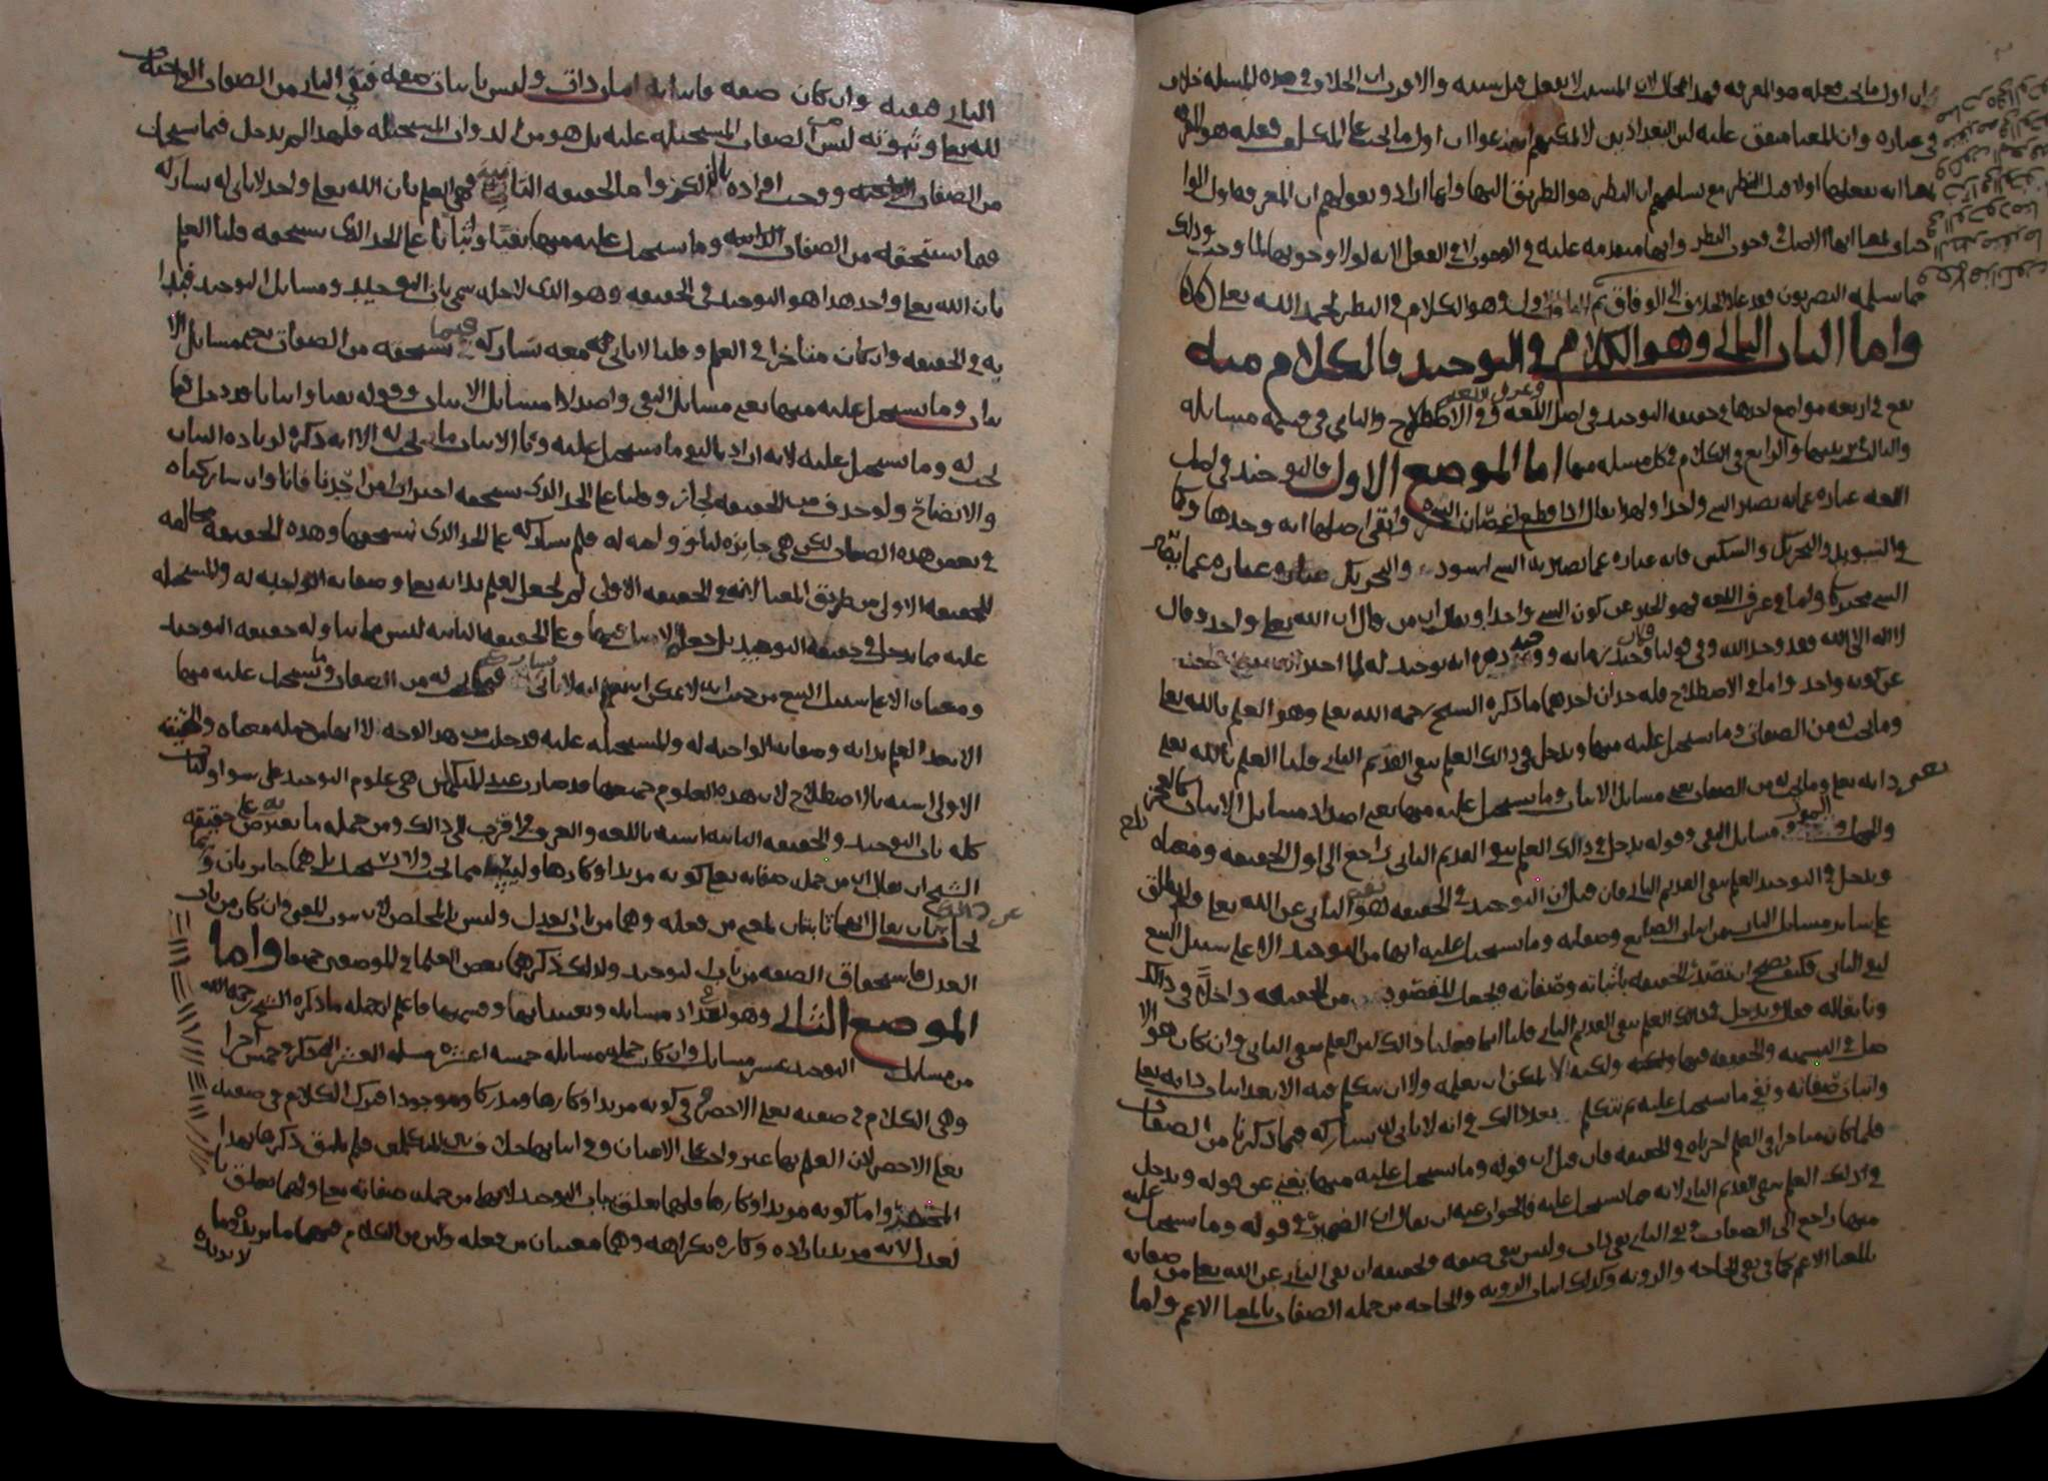 ان اول ما يجب فعله هو المعرفه فهذا محال لان المسبب لا يفعل قبل سببه والاقرب ان الخلاف في هذه المسله خلاف
في عباره وان المعنا متفق عليه لان البغداذيين لا يمكنهم ان يدعوا ان اول ما يجب على المكلف فعله هو المعرفه
بمعنا انه يفعلها اولا قبل النظر مع تسليمهم ان النظر هو الطريق اليها وانما ارادوا بقولهم ان المعرفه اول الوا
جبات بمعنا انها الاصل في وجوب النظر وانها متقدمه عليه في الوجوب لا في الفعل لانه لولا وجوبها لما وجب وذلك
مما يسلمه البصريون فقد عاد الخلاف الى الوفاق تم الباب الاول وهو الكلام في النظر بحمد الله تعلى
واما الباب الثاني وهو الكلام في التوحيد فالكلام منه
يقع في اربعه مواضع احدها في حقيقه التوحيد في اصل اللغه وعرف اللغه وفي الاصطلاح والثاني في قسمه مسايله
والثالث في ترتيبها والرابع في الكلام في كل مسله منها اما الموضع الاول فالتوحيد في اصل
اللغه عباره عما به يصير الشي واحدا ولهذا يقال اذا قطع اغصان الشجره وابقى اصلها انه وحدها وكما
في التسويد والتحريك والتسكين فانه عباره عما يصير به الشي اسود والتحريك عباره عما يصير
الشي متحركا واما في عرف اللغه فهو الخبر عن كون الشي واحدا ويقال ان من قال ان الله تعلى واحد وقال
لا اله الا الله فقد وحد الله وفي قولنا فلان وحيد زمانه ووحيد دهره انه توحيد له لما اخبر
عن كونه واحد واما في الاصطلاح فله حدان احدهما ما ذكره الشيخ رحمه الله تعلى وهو العلم بالله تعلى
وما يجب له من الصفات وما يستحيل عليه منها ويدخل في ذلك العلم بنفي القديم الثاني قلنا العلم بالله تعلى
يعني ذاته تعلى وما يجب له من الصفات يعني مسايل الاثبات وما يستحيل عليه منها يعني اضداد مسايل الاثبات كالعجز
والجهل والموت ومسايل النفي وقوله يدخل في ذلك العلم بنفي القديم الثاني راجع الى اول الحقيقه ومعناه
ويدخل في التوحيد العلم بنفي القديم الثاني فان قيل ان التوحيد في الحقيقه هو نفي الثاني عن الله تعلى ولم يطلق
على ساير مسايل الباب من اثبات الصانع وصفاته وما يستحيل عليه انها من التوحيد الا على سبيل التبع
لنفي الثاني فكيف يصح ان تصدر الحقيقه باثباته وصفاته ويجعل المقصود من الحقيقه داخلا في ذلك
وتابعا له فقال ويدخل في ذلك العلم بنفي القديم الثاني قلنا انما فعلنا ذلك لان العلم بنفي الثاني وان كان هو الا
صل في التسميه والحقيقه فيها ولكنه لا يمكن ان يعلمه ولا ان يتكلم فيه الا بعد اثبات ذاته تعلى
واثبات صفاته ونفي ما يستحيل عليه ثم نتكلم بعد ذلك في انه لا ثاني له يشاركه فيما ذكرنا من الصفات
فلما كان متاخرا في العلم اخرناه في الحقيقه فان قيل ان قوله وما يستحيل عليه منها يغني عن قوله ويدخل
في ذلك العلم بنفي القديم الثاني لانه مما يستحيل عليه فالجواب عنه ان يقال ان الضمير في قوله وما يستحيل عليه
منها راجع الى الصفات ونفي الثاني نفي ذات وليس بنفي صفه وحقيقه ان نفي الثاني عن الله تعلى من صفاته
بالمعنا الاعم كما في نفي الحاجه والرويه وكذلك اثبات الرويه والحاجه من جمله الصفات بالمعنا الاعم واما
الثاني صفه وان كان فاثباته اثبات ذات وليس باثبات صفه فنفي الثاني من الصفات الواجبه
لله تعلى وثبوته ليس من الصفات المستحيله عليه بل هو من الذوات المستحيله فلهذا لم يدخل فيما يستحيل
من الصفات ووجب افراده بالذكر واما الحقيقه الثانيه فهي العلم بان الله تعلى واحد لا ثاني له يشاركه
فيما يستحقه من الصفات وما يستحيل عليه منها نفيا واثباتا على الحد الذي يستحقه قلنا العلم
بان الله تعلى واحد هذا هو التوحيد في الحقيقه وهو الذي لاجله سمي باب التوحيد ومسايل التوحيد فبدا
به في الحقيقه وان كان متاخرا في العلم وقلنا لا ثاني معه يشاركه فيما يستحقه من الصفات يعم مسايل الا
ثبات وما يستحيل عليه منها يعني مسايل النفي واضداد مسايل الاثبات وقوله نفيا واثباتا قد دخل فيما
يجب له وما يستحيل عليه لانه اراد بالنفي ما يستحيل عليه وبالاثبات ما يجب له الا انه ذكره لزياده البيان
والايضاح ولو حذف من الحقيقه لجاز وقلنا على الحد الذي يستحقه احترازا من احدنا فانا وان شاركناه
في بعض هذه الصفات لكن هي جايزه لنا وواجبه له فلم نشاركه على الحد الذي يستحقها وهذه الحقيقه مخالفه
للحقيقه الاولى من طريق المعنا لانه في الحقيقه الاولى لم يجعل العلم بذاته تعلى وصفاته الواجبه له والمستحيله
عليه مما يدخل في حقيقه التوحيد بل جعل وعلى الحقيقه الثانيه ليس حقيقه التوحيد
ومعناه الا على سبيل التبع من حيث انه لا يمكن ان يعلم انه لا ثاني يشاركه فيما يجب له من الصفات وما يستحيل عليه منها
الا بعد العلم بذاته وصفاته الواجبه له والمستحيله عليه فدخلت من هذا الوجه لا انها من جمله معناه والحقيقه
الاولى اشبه بالاصطلاح لان هذه العلوم جميعها قد صارت عند المتكلمين هي علوم التوحيد على سوا ولذلك
كله باب التوحيد والحقيقه الثانيه اشبه باللغه والعرف واقرب الى ذلك ومن جمله ما يعترض به على حقيقه
الشيخ ان يقال ان من جمله صفاته تعلى كونه مريدا وكارها وليسا مما يجب ولا مما يستحيل بل هما جايزتان وربما
يجاب عن ذلك بان يقال انهما ثابتتان لمعنى من فعله وهما من باب العدل وليس بالمخلص لان ثبوت المعنى وان كان من باب
العدل فاستحقاق الصفه من باب التوحيد ولذلك ذكرهما بعض العلما في الموضعين جميعا واما
الموضع الثاني وهو اعداد مسايله وتعيينها وقسمتها فاعلم ان جمله ما ذكره الشيخ رحمه الله
من مسايل التوحيد عشر مسايل وان كان جمله مسايله خمسه عشره مسله العشر المذكوره وخمس اخرا
وهي الكلام في صفته تعلى الاخص وفي كونه مريدا وكارها ومدركا وموجودا فترك الكلام في صفته
تعلى الاخص لان العلم بها غير واجب على الاعيان وفي اثباتها خلاف بين المتكلمين فلم يلق ذكرها بهذا
المختصر واما كونه مريدا وكارها فلهما تعلق بباب التوحيد لانهما من جمله صفاته تعلى ولهما تعلق با
لعدل لانه مريد باراده وكاره بكراهه وهما معنيان من فعله ولان من الكلام فيهما ما يريده وما
لا يريده